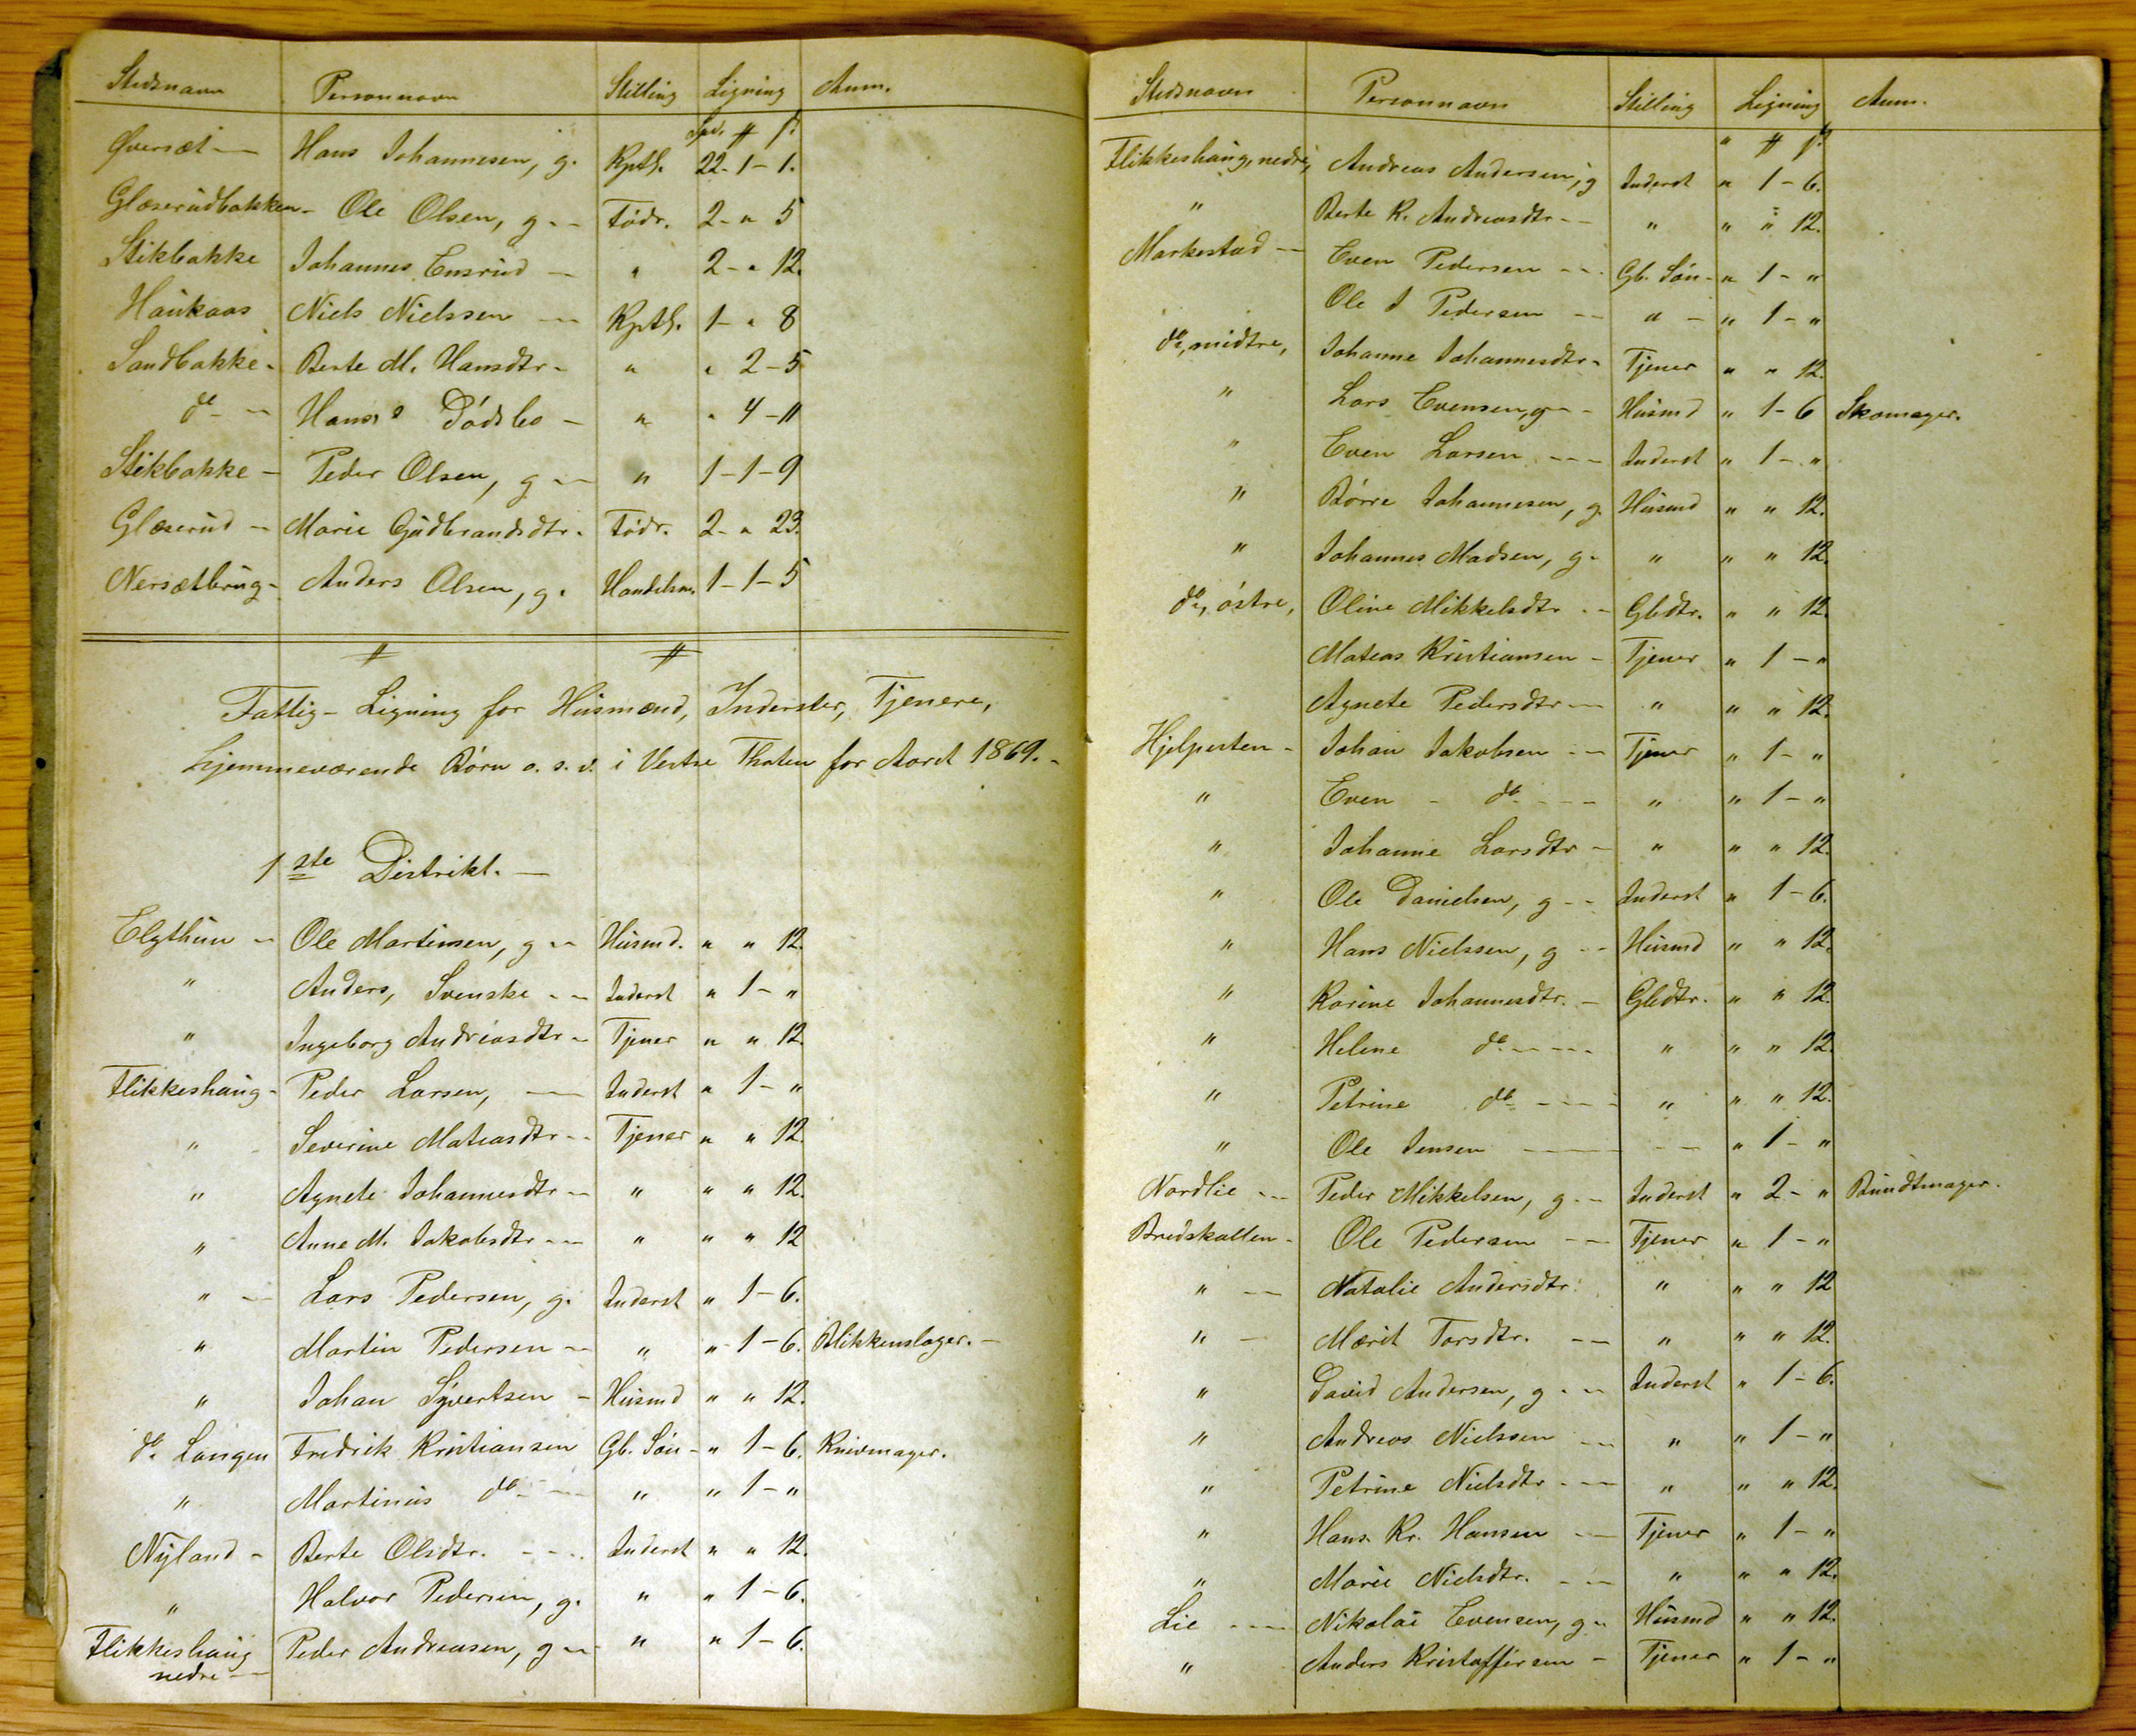 Stedsnavn Personnavn Stilling Ligning Anm.
Spd. # ß
Øversæt - Hans Johannesen, g. Kpth. 22-1-1.
Glæserudbakken - Ole Olsen, g - - Födr. 2 - " 5
Stikbakke Johannes Ensrud - " 2 - " 12.
Haukaas Niels Nielssen - Kpth. 1 - " 8
Sandbakke - Berte M. Hansdtr - " " 2-5
do - - Hans's Dödsbo - " " 4-11
Stikbakke - Peder Olsen, g - - " 1-1-9
Glæserud - Marie Gudbrandsdtr. Födr. 2 - " 23.
Nersætbrug - Anders Olsen, g. Handelsm. 1-1-5
Fattig-Ligning for Husmænd, Inderster, Tjenere,
hjemmeværende Börn o. s. v. i Vestre Thoten for Aaret 1869. -
1ste Distrikt. -
Elgthun - Ole Martinsen, g - - Husmd. " " 12.
" Anders, Svenske - - Inderst " 1 - "
" Ingeborg Andreasdtr - Tjener " " 12.
Flikkeshaug - Peder Larsen, - Inderst " 1 - "
" Severine Mateasdtr - - Tjener " " 12.
" Agnete Johannesdtr - " " " 12.
" Anne M. Jakobsdtr - - " " " 12
" - Lars Pedersen, g. Inderst " 1-6.
" Martin Pedersen - " " 1-6. Blikkenslager. -
" Johan Syvertsen - Husmd " " 12.
do Langen Fredrik Kristiansen Gb. Sön - " 1-6. Knivmager.
" Martinius do - " " 1 - "
Nyland - Berte Olsdtr. - - Inderst " " 12.
" Halvor Pedersen, g. " " 1-6.
Flikkeshaug Peder Andreasen, g - - " " 1-6.
nedre -
Stedsnavn Personnavn Stilling Ligning Anm.
" # ß
Flikkeshaug, nedre, Andreas Andersen, g Inderst " 1-6.
" Berte K. Andreasdtr - - " " " 12.
Markestad - Even Pedersen - - Gb. Sön - " 1 - "
Ole J Pedersen - " - " 1 - "
do, midtre, Johanne Johannesdtr - Tjener " " 12.
" Lars Evensen, g - - Husmd " 1-6 Skomager.
" Even Larsen - - Inderst " 1 - "
" Börre Johannesen, g. Husmd " " 12.
" Johannes Madsen, g - " " " 12.
do, östre, Oline Mikkelsdtr - - Gbdtr. " " 12.
Mateas Kristiansen - Tjener " 1 - "
Agnete Pedersdtr - " " " 12.
Hjelpesten - Johan Jakobsen - - Tjener " 1 - "
" Even - do - - - " " 1 - "
" Johanne Larsdtr - " " " 12.
" Ole Danielsen, g - - Inderst " 1-6.
" Hans Nielssen, g - - Husmd " " 12.
" Karine Johannesdtr. - Gbdtr. " " 12.
" Helene do - - - " " " 12.
" Petrine do - - - " " " 12.
" Ole Jensen - - - " 1 - "
Nordlie - - Peder Mikkelsen, g - - Inderst " 2 - " Bundtmager.
Bredskallen - Ole Pedersen - - Tjener " 1 - "
" - - Natalie Andersdtr. " " " 12
" - Marit Torsdtr. - - " " " 12.
" David Andersen, g - - Inderst " 1-6.
" Andreas Nielssen - - " " 1 - "
" Petrine Nielsdtr - - " " " 12.
" Hans. Kr. Hansen - Tjener " 1 - "
" Marie Nielsdtr. - - " " " 12.
Lie - - Nikolai Evensen, g - Husmd " " 12.
" Anders Kristoffersen - Tjener " 1 - "